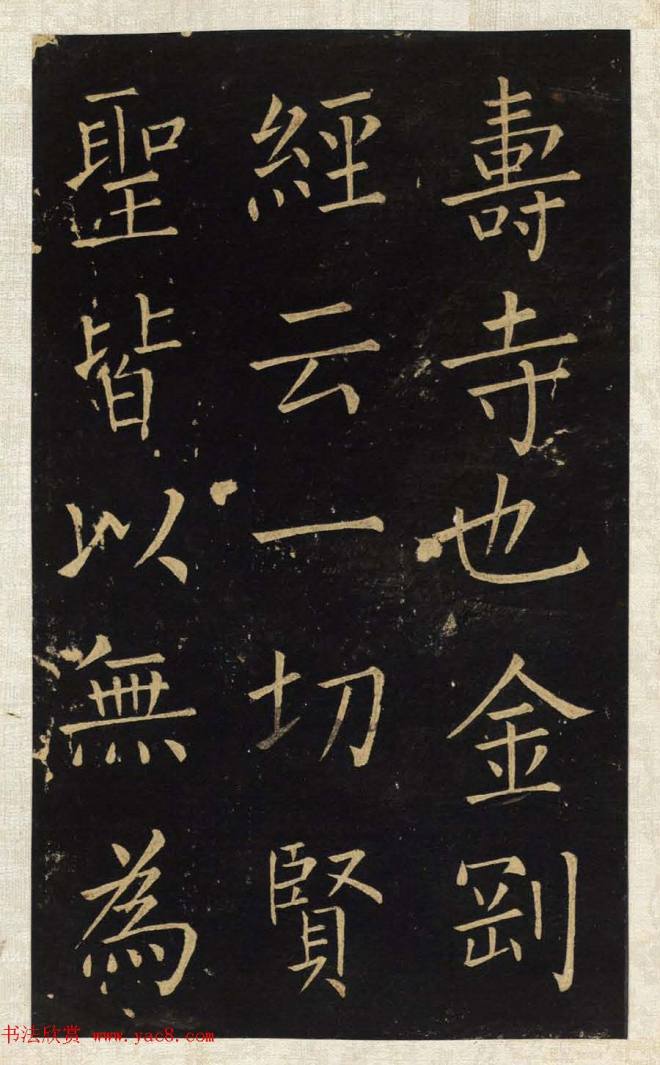 壽寺也金剛
經云一切賢
聖皆以無為
书法欣赏 www.yac8.com